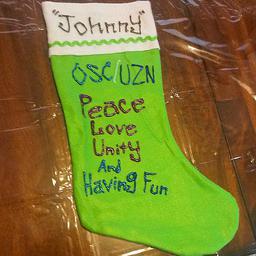 "Johnny"
OSC/UZN
Peace
Love
Unity
And
Having Fun